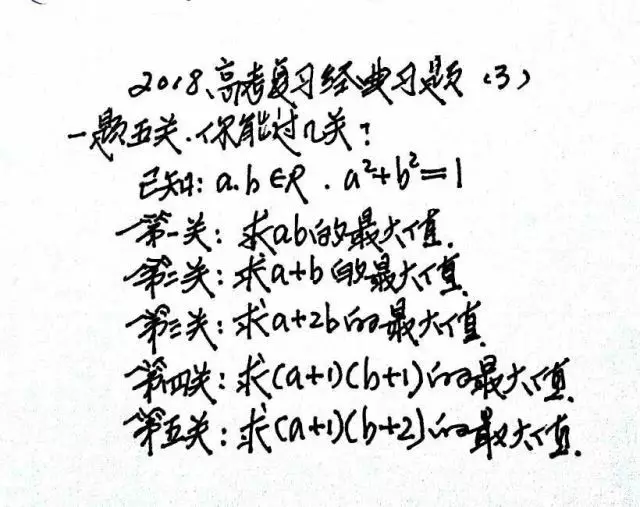 2018、高考复习经典习题(3)
一题五关.你能过几关?
已知: a.b∈R . a²+b²=1
第一关: 求ab的最大值.
第二关: 求a+b的最大值.
第三关: 求a+2b的最大值.
第四关: 求(a+1)(b+1)的最大值.
第五关: 求(a+1)(b+2)的最大值.